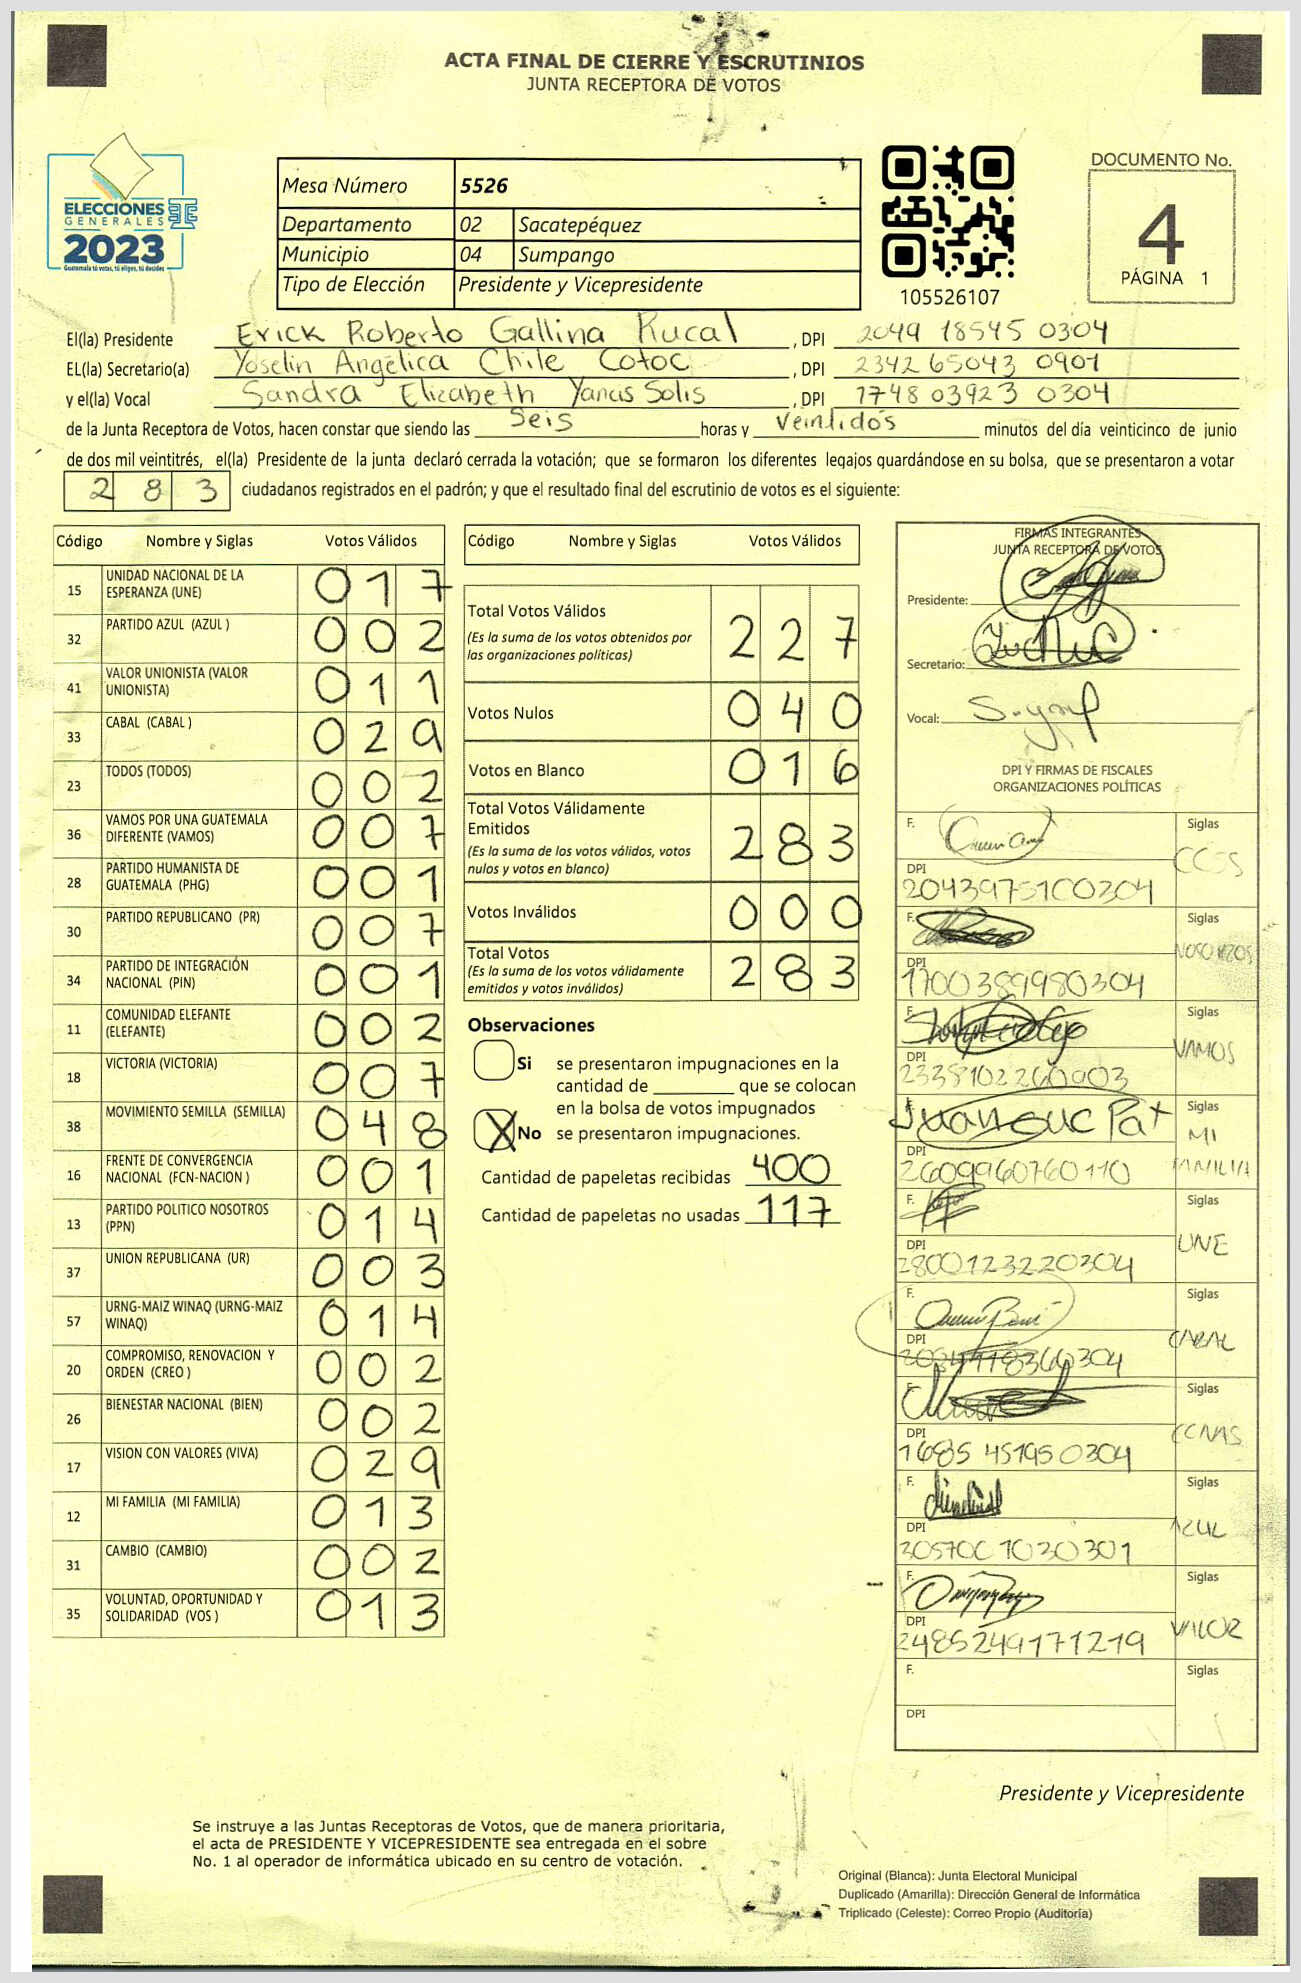 ACTA FINAL DE CIERRE Y ESCRUTINIOS
JUNTA RECEPTORA DE VOTOS
ELECCIONES
GENERALES
2023
Guatemala tú votas, tú eliges, tú decides
Mesa Número 5526
Departamento 02 Sacatepéquez
Municipio 04 Sumpango
Tipo de Elección Presidente y Vicepresidente
105526107
DOCUMENTO No.
4
PÁGINA 1
El(la) Presidente Erick Roberto Gallina Rucal , DPI 2049 18545 0304
EL(la) Secretario(a) Yoselin Angélica Chile Cotoc , DPI 2342 65043 0901
y el(la) Vocal Sandra Elizabeth Yanus Solis , DPI 1748 03923 0304
de la Junta Receptora de Votos, hacen constar que siendo las Seis horas y Veintidós minutos del día veinticinco de junio
de dos mil veintitrés, el(la) Presidente de la junta declaró cerrada la votación; que se formaron los diferentes legajos guardándose en su bolsa, que se presentaron a votar
283 ciudadanos registrados en el padrón; y que el resultado final del escrutinio de votos es el siguiente:
Código Nombre y Siglas Votos Válidos
15 UNIDAD NACIONAL DE LA ESPERANZA (UNE) 017
32 PARTIDO AZUL (AZUL ) 002
41 VALOR UNIONISTA (VALOR UNIONISTA) 011
33 CABAL (CABAL ) 029
23 TODOS (TODOS) 002
36 VAMOS POR UNA GUATEMALA DIFERENTE (VAMOS) 007
28 PARTIDO HUMANISTA DE GUATEMALA (PHG) 001
30 PARTIDO REPUBLICANO (PR) 007
34 PARTIDO DE INTEGRACIÓN NACIONAL (PIN) 001
11 COMUNIDAD ELEFANTE (ELEFANTE) 002
18 VICTORIA (VICTORIA) 007
38 MOVIMIENTO SEMILLA (SEMILLA) 048
16 FRENTE DE CONVERGENCIA NACIONAL (FCN-NACION ) 001
13 PARTIDO POLITICO NOSOTROS (PPN) 014
37 UNION REPUBLICANA (UR) 003
57 URNG-MAIZ WINAQ (URNG-MAIZ WINAQ) 014
20 COMPROMISO, RENOVACION Y ORDEN (CREO ) 002
26 BIENESTAR NACIONAL (BIEN) 002
17 VISION CON VALORES (VIVA) 029
12 MI FAMILIA (MI FAMILIA) 013
31 CAMBIO (CAMBIO) 002
35 VOLUNTAD, OPORTUNIDAD Y SOLIDARIDAD (VOS ) 013
Código Nombre y Siglas Votos Válidos
Total Votos Válidos 227
(Es la suma de los votos obtenidos por
las organizaciones políticas)
Votos Nulos 040
Votos en Blanco 016
Total Votos Válidamente
Emitidos 283
(Es la suma de los votos válidos, votos
nulos y votos en blanco)
Votos Inválidos 000
Total Votos 283
(Es la suma de los votos válidamente
emitidos y votos inválidos)
Observaciones
Si se presentaron impugnaciones en la
cantidad de ________ que se colocan
en la bolsa de votos impugnados
X No se presentaron impugnaciones.
Cantidad de papeletas recibidas 400
Cantidad de papeletas no usadas 117
FIRMAS INTEGRANTES
JUNTA RECEPTORA DE VOTOS
Presidente:
Secretario:
Vocal:
DPI Y FIRMAS DE FISCALES
ORGANIZACIONES POLÍTICAS
F. Siglas
DPI
2043975100304
F. Siglas NOSOTROS
DPI
1700389980304
F. Siglas VAMOS
DPI
2338102260903
F. Juan Suc Pat Siglas MI FAMILIA
DPI
2609960760110
F. Siglas UNE
DPI
2800123220304
F. Siglas CABAL
DPI
F. Siglas
DPI
1685 451950304
F. Siglas AZUL
DPI
F. Siglas VALOR
DPI
2485249171219
F. Siglas
DPI
Presidente y Vicepresidente
Se instruye a las Juntas Receptoras de Votos, que de manera prioritaria,
el acta de PRESIDENTE Y VICEPRESIDENTE sea entregada en el sobre
No. 1 al operador de informática ubicado en su centro de votación.
Original (Blanca): Junta Electoral Municipal
Duplicado (Amarilla): Dirección General de Informática
Triplicado (Celeste): Correo Propio (Auditoría)